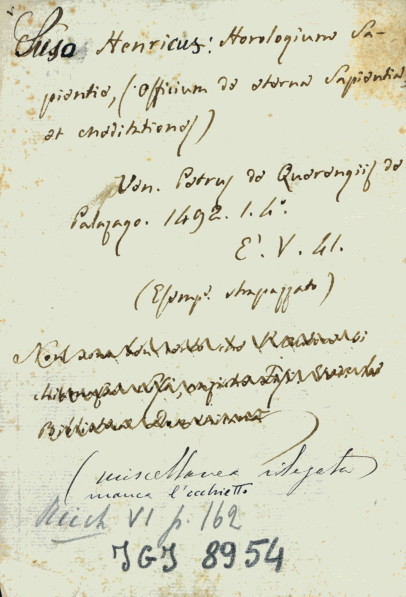 Suso Henricus: Horologium Sa-
pientie, (Officium de eterna Sapientia
et meditationes)
Ven. Petrus de Quarengiis de
Palazago. 1492. 1. 4°.
E'. V. 41.
(Esemp. strapazzato)
(miscellanea rilegata)
manca l'occhietto
Reich VI p. 162
IGI 8954